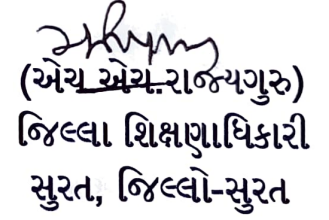 (એચ એચ.રાજ્યગુરુ)
જિલ્લા શિક્ષણાધિકારી
સુરત, જિલ્લો-સુરત